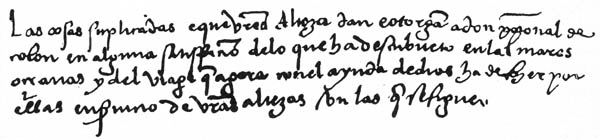 Las cosas suplicadas e que vras Altezas dan e otorgan a don xpoual de
colon en alguna satisfacion delo que ha descubierto en las mares
oceanas y del viage q agora con el ayuda de dios ha de fazer por
ellas en seruicio de vras altezas son las q se siguen.